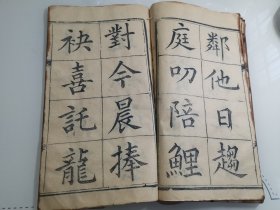 鄰他日趨
庭叨陪鯉
對今晨捧
袂喜託龍